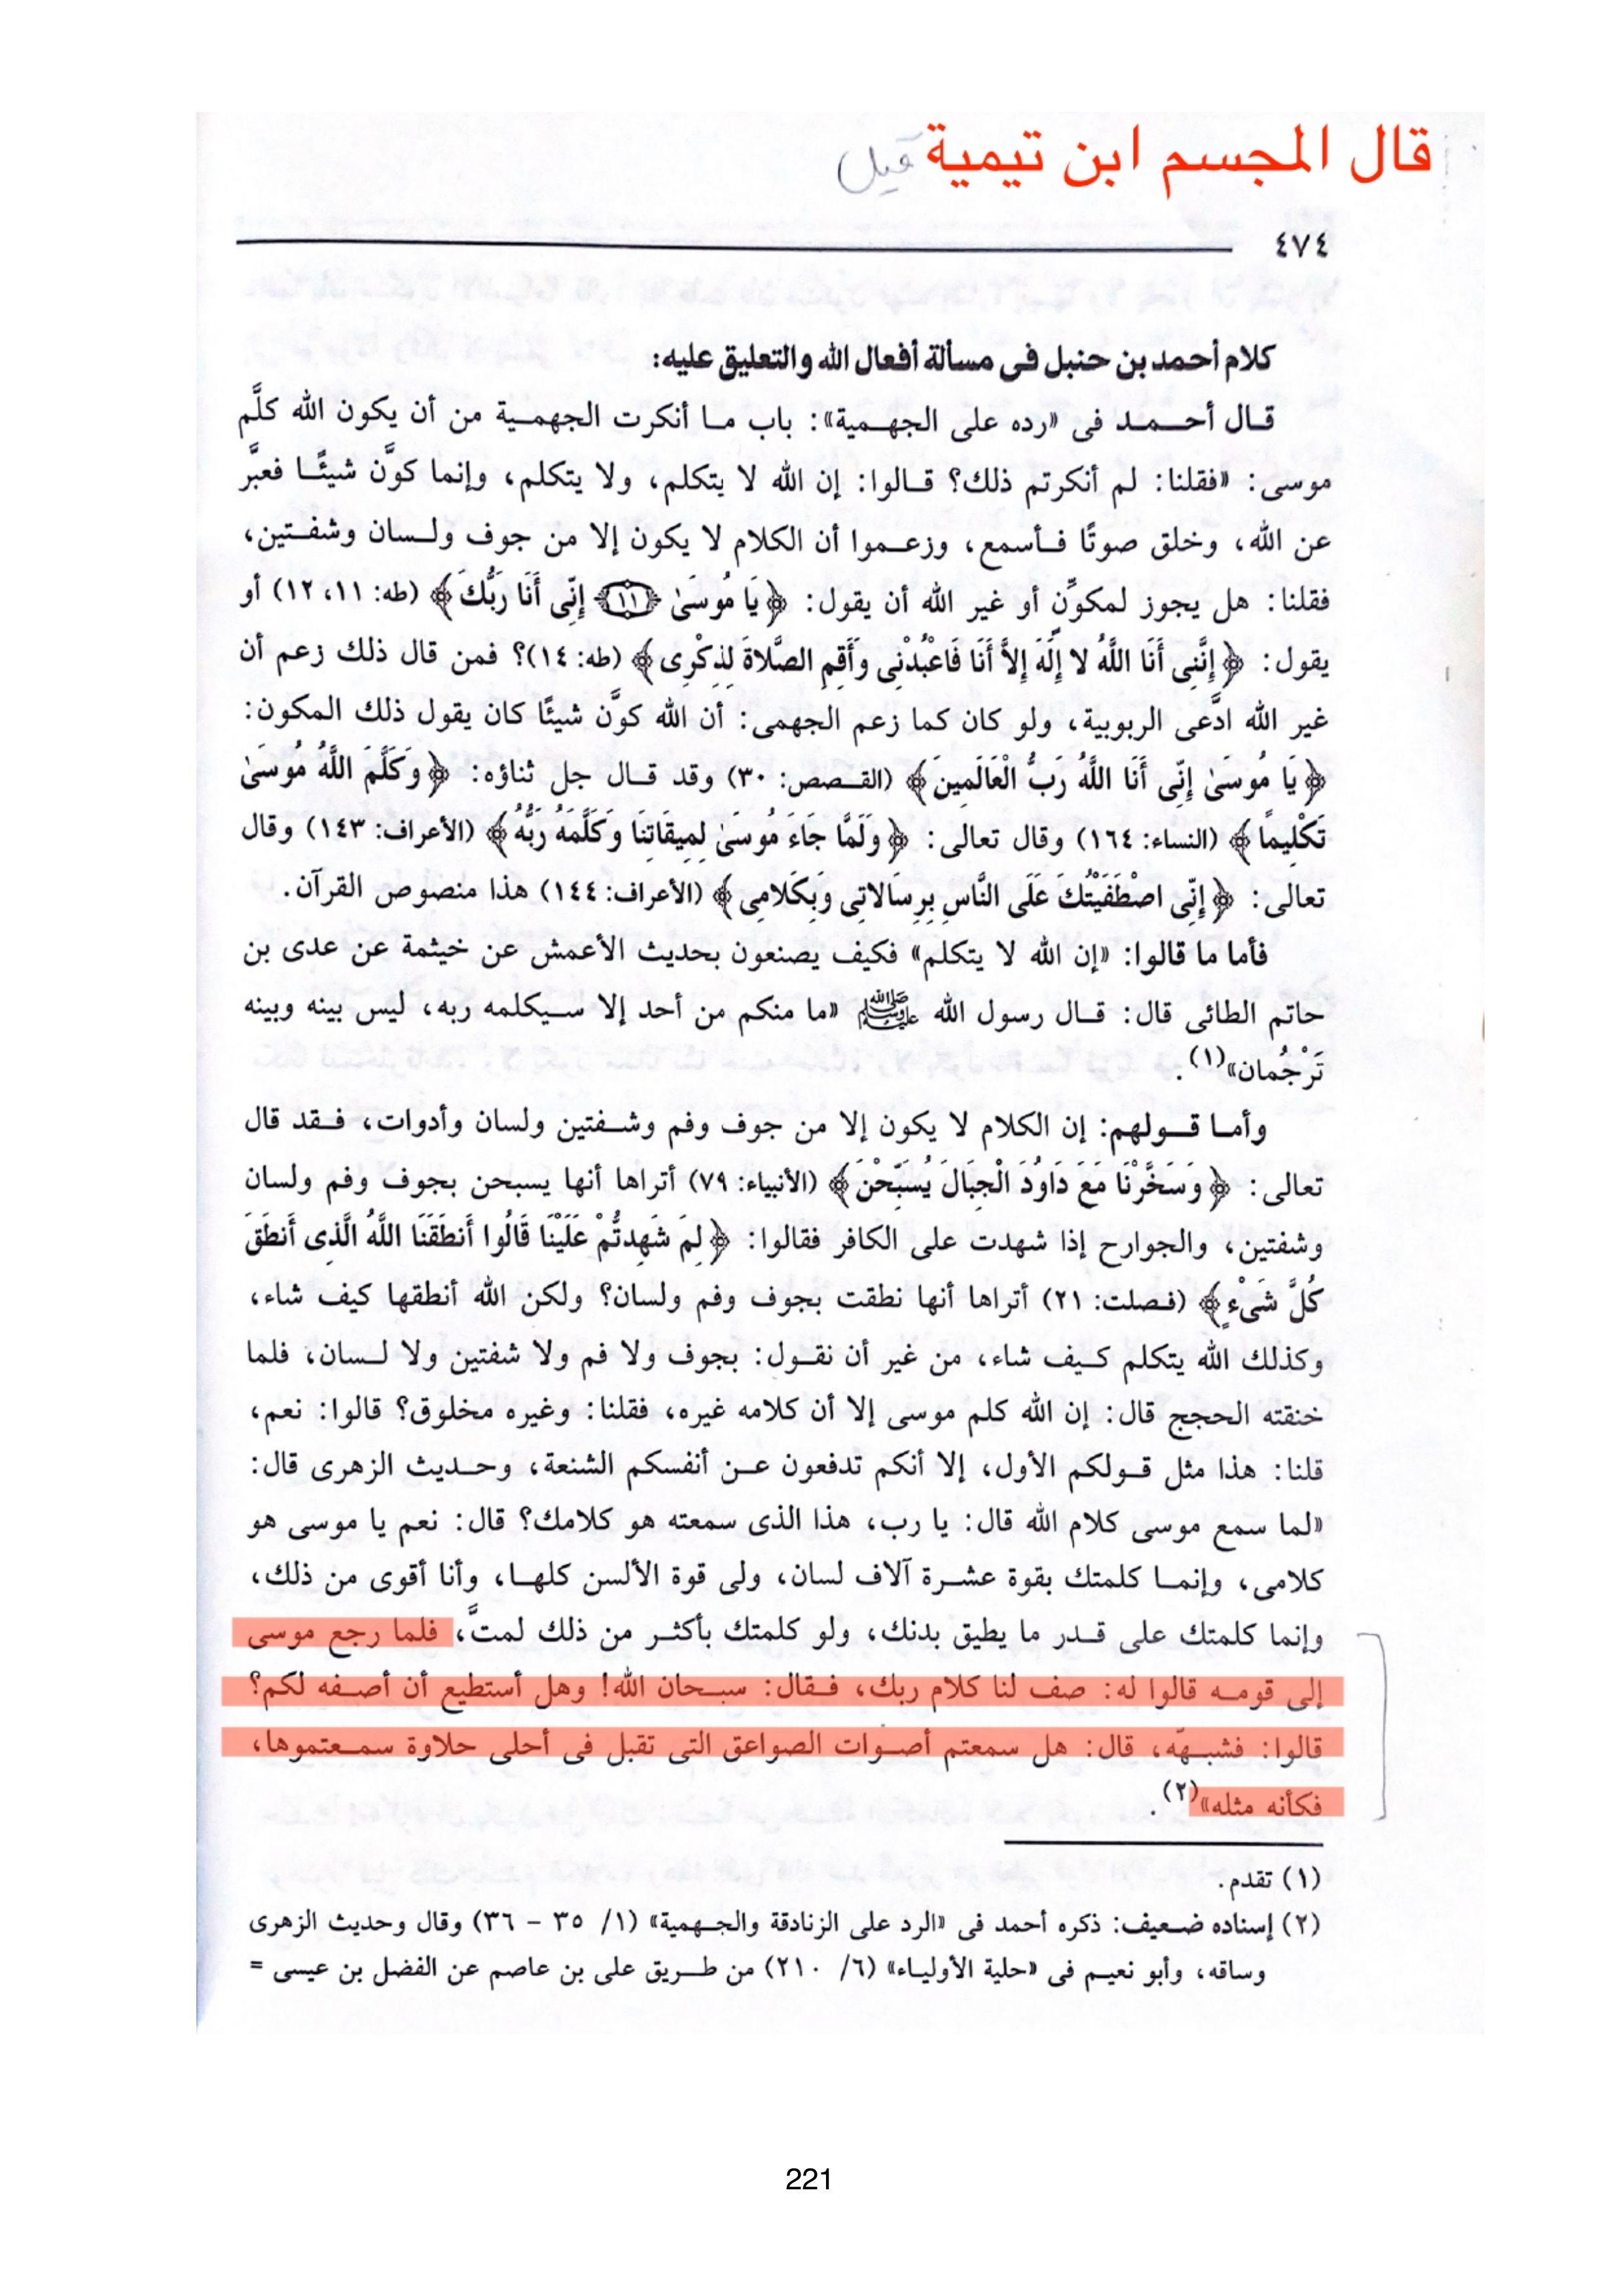 قال المجسم ابن تيمية قيل
٤٧٤
كلام أحمد بن حنبل فى مسألة أفعال الله والتعليق عليه:
قال أحمد فى «رده على الجهمية»: باب ما أنكرت الجهمية من أن يكون الله كلَّم
موسى: «فقلنا: لم أنكرتم ذلك؟ قالوا: إن الله لا يتكلم، ولا يتكلم، وإنما كوَّن شيئًا فعبَّر
عن الله، وخلق صوتًا فأسمع، وزعموا أن الكلام لا يكون إلا من جوف ولسان وشفتين،
فقلنا: هل يجوز لمكوِّنٍ أو غير الله أن يقول: ﴿يَا مُوسَىٰ ﴿١١﴾ إِنِّى أَنَا رَبُّكَ﴾ (طه: ١١، ١٢) أو
يقول: ﴿إِنَّنِى أَنَا اللَّهُ لا إِلَهَ إِلاَّ أَنَا فَاعْبُدْنِى وَأَقِمِ الصَّلاةَ لِذِكْرِى﴾ (طه: ١٤)؟ فمن قال ذلك زعم أن
غير الله ادَّعى الربوبية، ولو كان كما زعم الجهمى: أن الله كوَّن شيئًا كان يقول ذلك المكون:
﴿يَا مُوسَىٰ إِنِّى أَنَا اللَّهُ رَبُّ الْعَالَمِينَ﴾ (القصص: ٣٠) وقد قال جل ثناؤه: ﴿وَكَلَّمَ اللَّهُ مُوسَىٰ
تَكْلِيمًا﴾ (النساء: ١٦٤) وقال تعالى: ﴿وَلَمَّا جَاءَ مُوسَىٰ لِمِيقَاتِنَا وَكَلَّمَهُ رَبُّهُ﴾ (الأعراف: ١٤٣) وقال
تعالى: ﴿إِنِّى اصْطَفَيْتُكَ عَلَى النَّاسِ بِرِسَالاتِى وَبِكَلامِى﴾ (الأعراف: ١٤٤) هذا منصوص القرآن.
فأما ما قالوا: «إن الله لا يتكلم» فكيف يصنعون بحديث الأعمش عن خيثمة عن عدى بن
حاتم الطائى قال: قال رسول الله ﷺ «ما منكم من أحد إلا سيكلمه ربه، ليس بينه وبينه
تَرْجُمان»(١).
وأما قولهم: إن الكلام لا يكون إلا من جوف وفم وشفتين ولسان وأدوات، فقد قال
تعالى: ﴿وَسَخَّرْنَا مَعَ دَاوُدَ الْجِبَالَ يُسَبِّحْنَ﴾ (الأنبياء: ٧٩) أتراها أنها يسبحن بجوف وفم ولسان
وشفتين، والجوارح إذا شهدت على الكافر فقالوا: ﴿لِمَ شَهِدتُّمْ عَلَيْنَا قَالُوا أَنطَقَنَا اللَّهُ الَّذِى أَنطَقَ
كُلَّ شَىْءٍ﴾ (فصلت: ٢١) أتراها أنها نطقت بجوف وفم ولسان؟ ولكن الله أنطقها كيف شاء،
وكذلك الله يتكلم كيف شاء، من غير أن نقول: بجوف ولا فم ولا شفتين ولا لسان، فلما
خنقته الحجج قال: إن الله كلم موسى إلا أن كلامه غيره، فقلنا: وغيره مخلوق؟ قالوا: نعم،
قلنا: هذا مثل قولكم الأول، إلا أنكم تدفعون عن أنفسكم الشنعة، وحديث الزهرى قال:
«لما سمع موسى كلام الله قال: يا رب، هذا الذى سمعته هو كلامك؟ قال: نعم يا موسى هو
كلامى، وإنما كلمتك بقوة عشرة آلاف لسان، ولى قوة الألسن كلها، وأنا أقوى من ذلك،
وإنما كلمتك على قدر ما يطيق بدنك، ولو كلمتك بأكثر من ذلك لمتَّ، فلما رجع موسى
إلى قومه قالوا له: صف لنا كلام ربك، فقال: سبحان الله! وهل أستطيع أن أصفه لكم؟
قالوا: فشبهّه، قال: هل سمعتم أصوات الصواعق التى تقبل فى أحلى حلاوة سمعتموها،
فكأنه مثله»(٢).
(١) تقدم.
(٢) إسناده ضعيف: ذكره أحمد فى «الرد على الزنادقة والجهمية» (١/ ٣٥ - ٣٦) وقال وحديث الزهرى
وساقه، وأبو نعيم فى «حلية الأولياء» (٦/ ٢١٠) من طريق على بن عاصم عن الفضل بن عيسى =
221